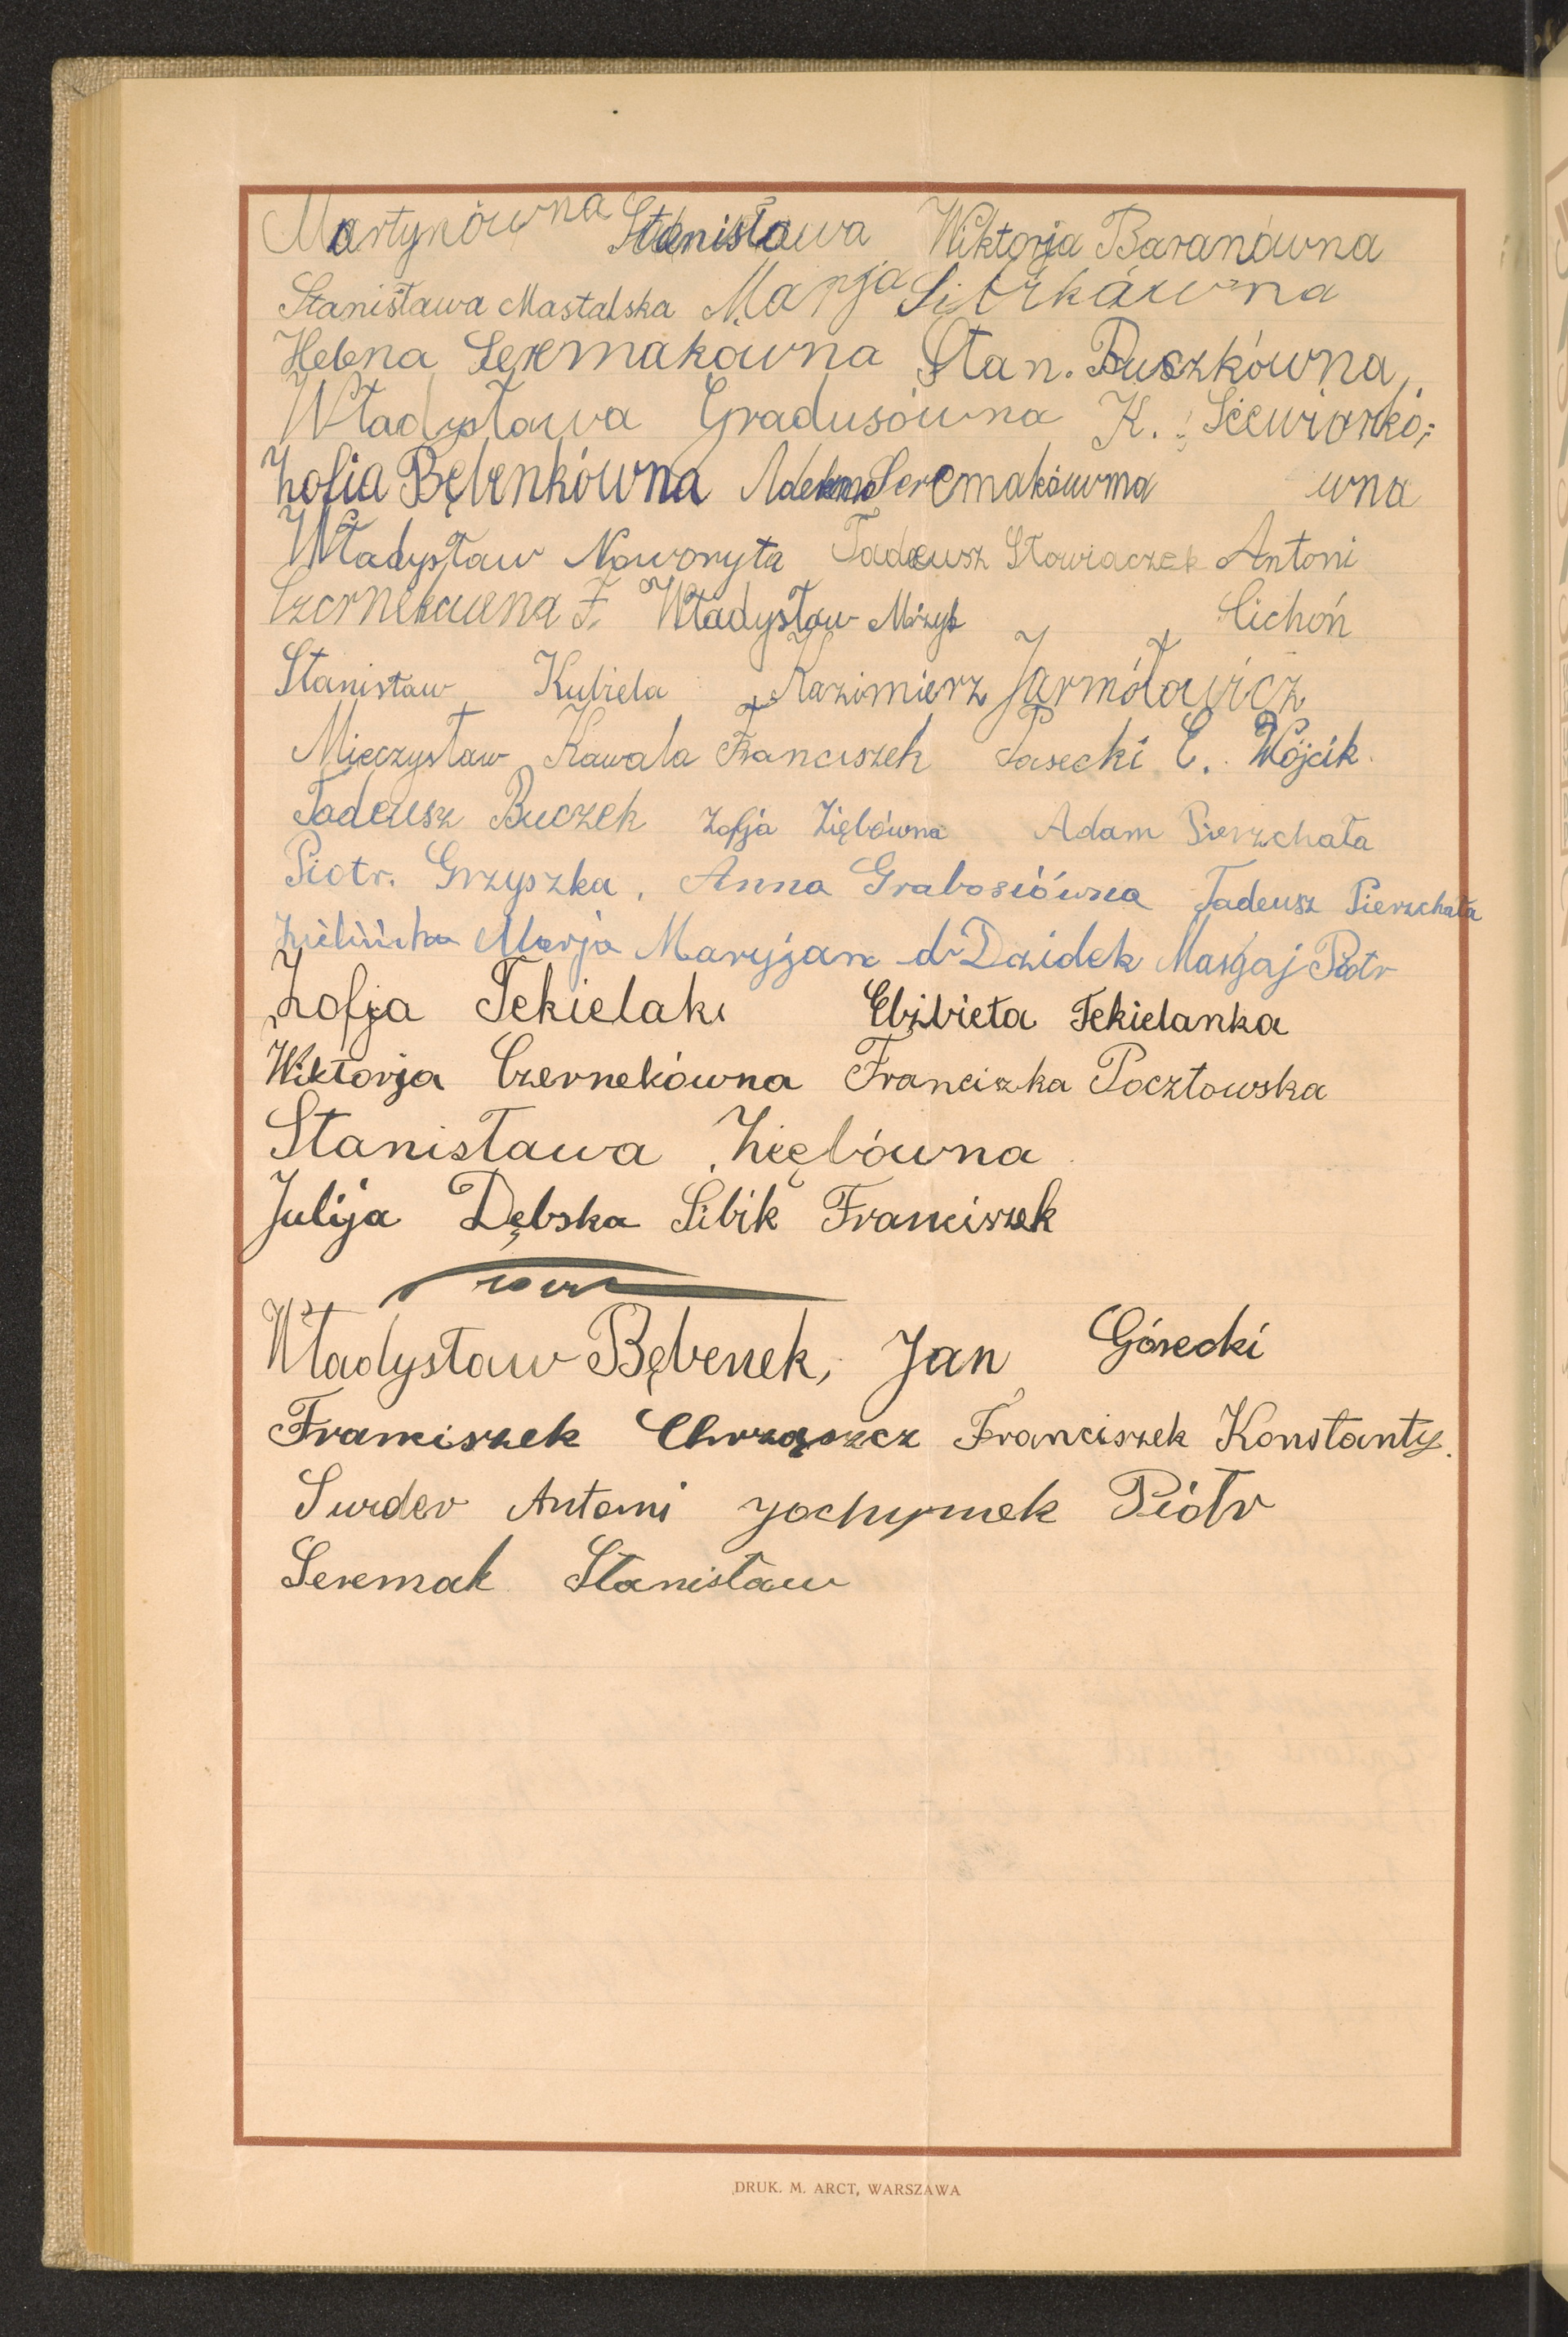 Martynówna Stanisława Wiktorja Baranówna
Stanisława Mastalska Marja
Helena Seremakówna Stan. Buszkówna,
Władysława Gradusówna K.
Zofia Bębenkówna Seremakówna wna
Władysław Noworyta Tadeusz Słowiaczek Antoni
Władysław Cichoń
Stanisław Kubiela Kazimierz Jarmółowicz
Mieczysław Kawala Franciszek Pasecki E. Wójcik.
Tadeusz Buczek Zofja Ziębówna Adam Pierzchała
Piotr. Grzyszka, Anna Grabosiówna Tadeusz Pierzchała
Marja Maryjan Dzidek Masgaj Piotr
Zofja Tekielak Elżbieta Tekielanka
Wiktorja Czernekówna Franciszka Pocztowska
Stanisława Ziębówna
Julija Dębska Sibik Franciszek
Władysław Bębenek, Jan Górecki
Franciszek Chrząszcz Franciszek Konstanty.
Surder Antoni Jochymek Piótr
Seremak Stanisław
DRUK. M. ARCT, WARSZAWA